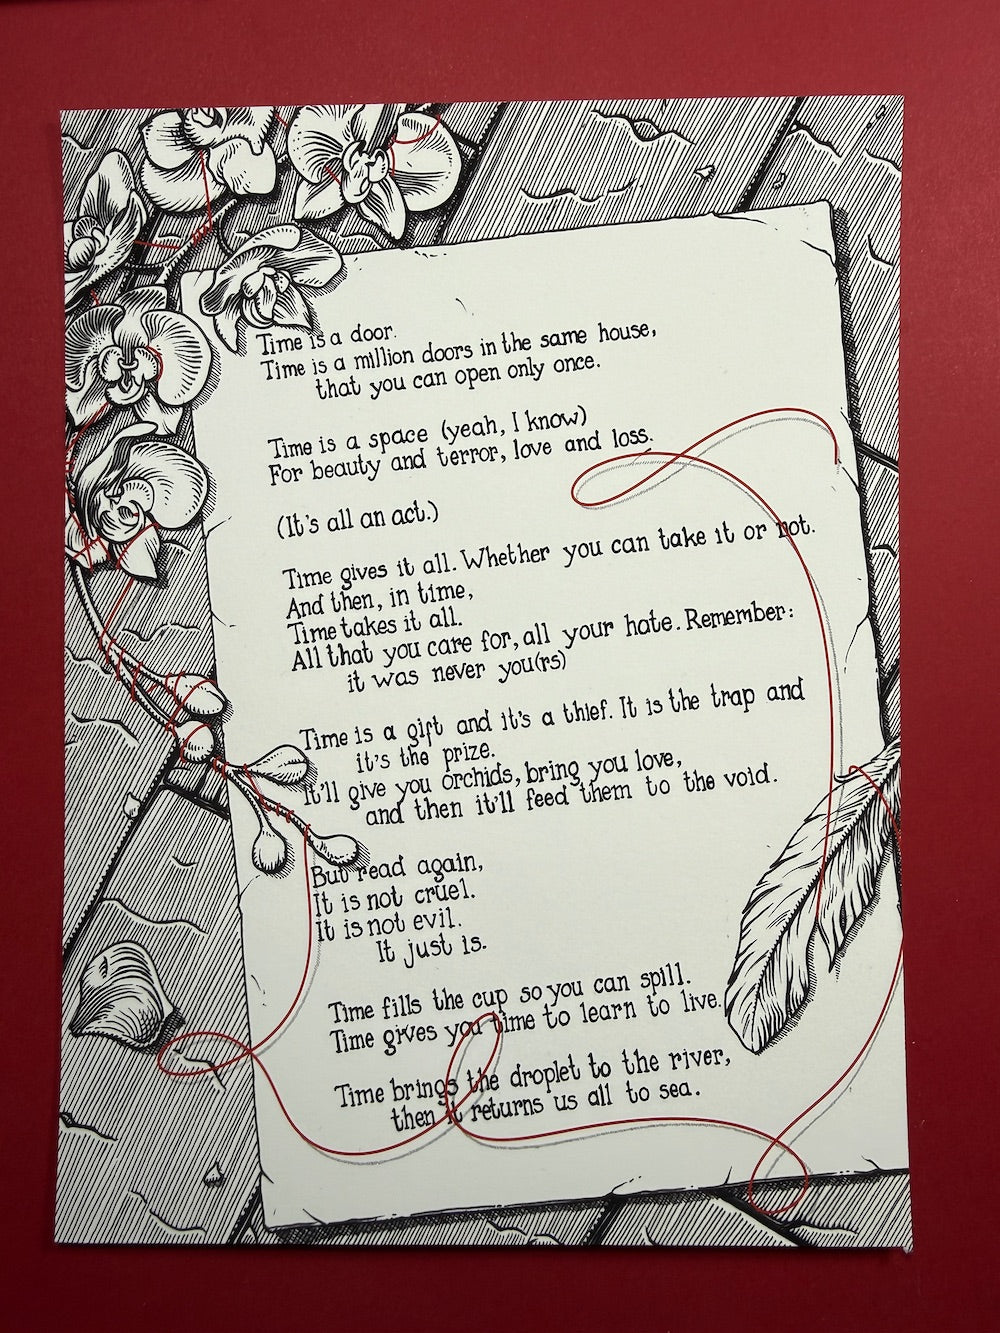 Time is a door.
Time is a million doors in the same house,
that you can open only once.
Time is a space (yeah, I know)
For beauty and terror, love and loss.
(It's all an act.)
Time gives it all. Whether you can take it or not.
And then, in time,
Time takes it all.
All that you care for, all your hate. Remember:
it was never you(rs)
Time is a gift and it's a thief. It is the trap and
it's the prize.
It'll give you orchids, bring you love,
and then it'll feed them to the void.
But read again,
It is not cruel.
It is not evil.
It just is.
Time fills the cup so you can spill.
Time gives you time to learn to live.
Time brings the droplet to the river,
then it returns us all to sea.